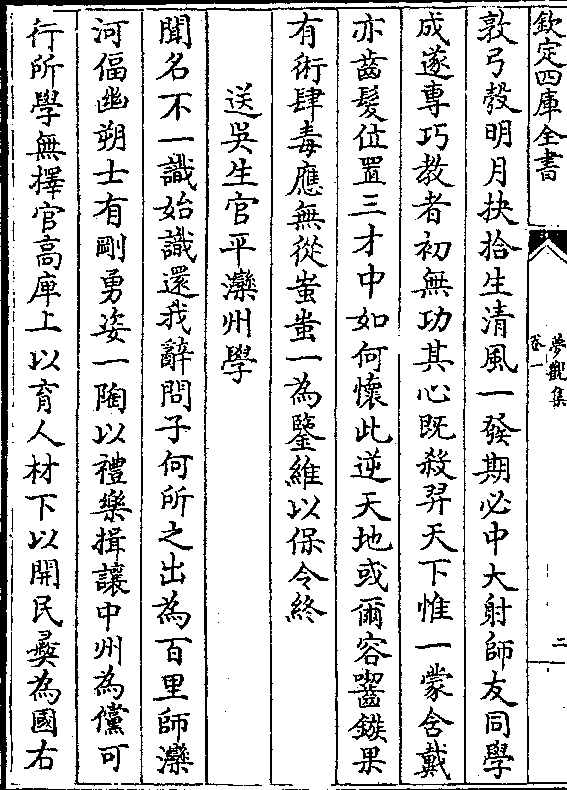 欽定四庫全書
夢觀集
卷一
二
敦弓彀明月抉拾生清風一發期必中大射師友同學
成遂專巧教者初無功其心既殺羿天下惟一蒙含戴
亦齒髮位置三才中如何懷此逆天地或爾容嚙鏃果
有術肆毒應無從蚩蚩一為鑒維以保令終
送吳生官平灤州學
聞名不一識始識還我辭問子何所之出為百里師灤
河偪幽朔士有剛勇姿一陶以禮樂揖讓中州為儻可
行所學無擇官高庳上以育人材下以開民彛為國右